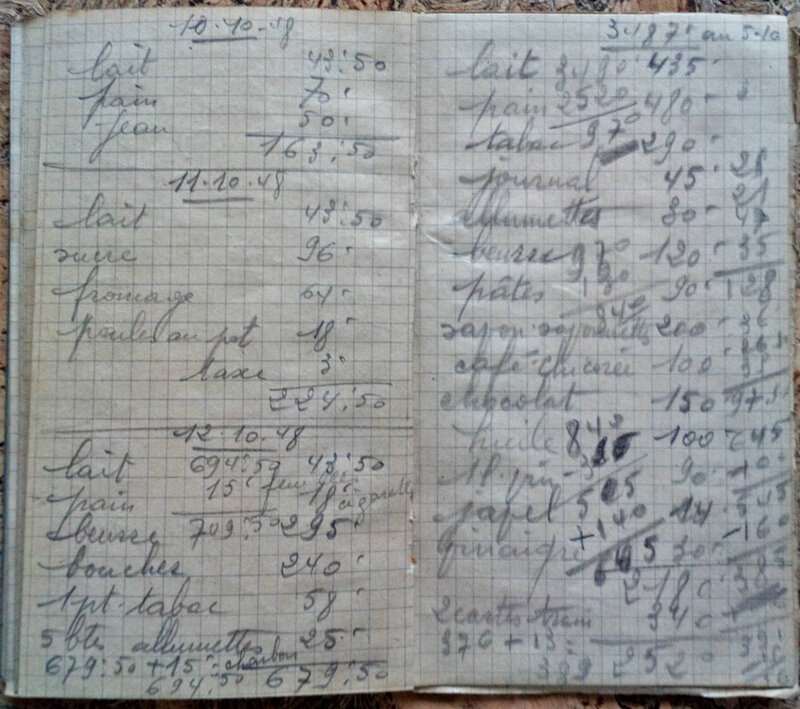 10-10-48
lait 43:50
pain 70:
Jean 50:
163:50
11-10-48
lait 43:50
sucre 96:
fromage 64:
poules au pot 18:
taxe 3:
224:50
12-10-48
lait 694:50 43:50
pain 15: 18:
beurre 709:50 295:
boucher 240:
1 pt-tabac 58:
5 btes allumettes 25:
679:50 + 15: charbon 679:50
694:50
3187: au 5-10
lait 3480: 435:
pain 2520 480:
tabac 970 290:
journal 45: 28
allumettes 30:
beurre 970 120: 35
pâtes 130 90: 128
840
savon savonnettes 200:
café-chicorée 100:
chocolat 150
huile 100: 645
90:
515
140
vinaigre 645 30:
2180:
340:
376 + 13:
389 2520: